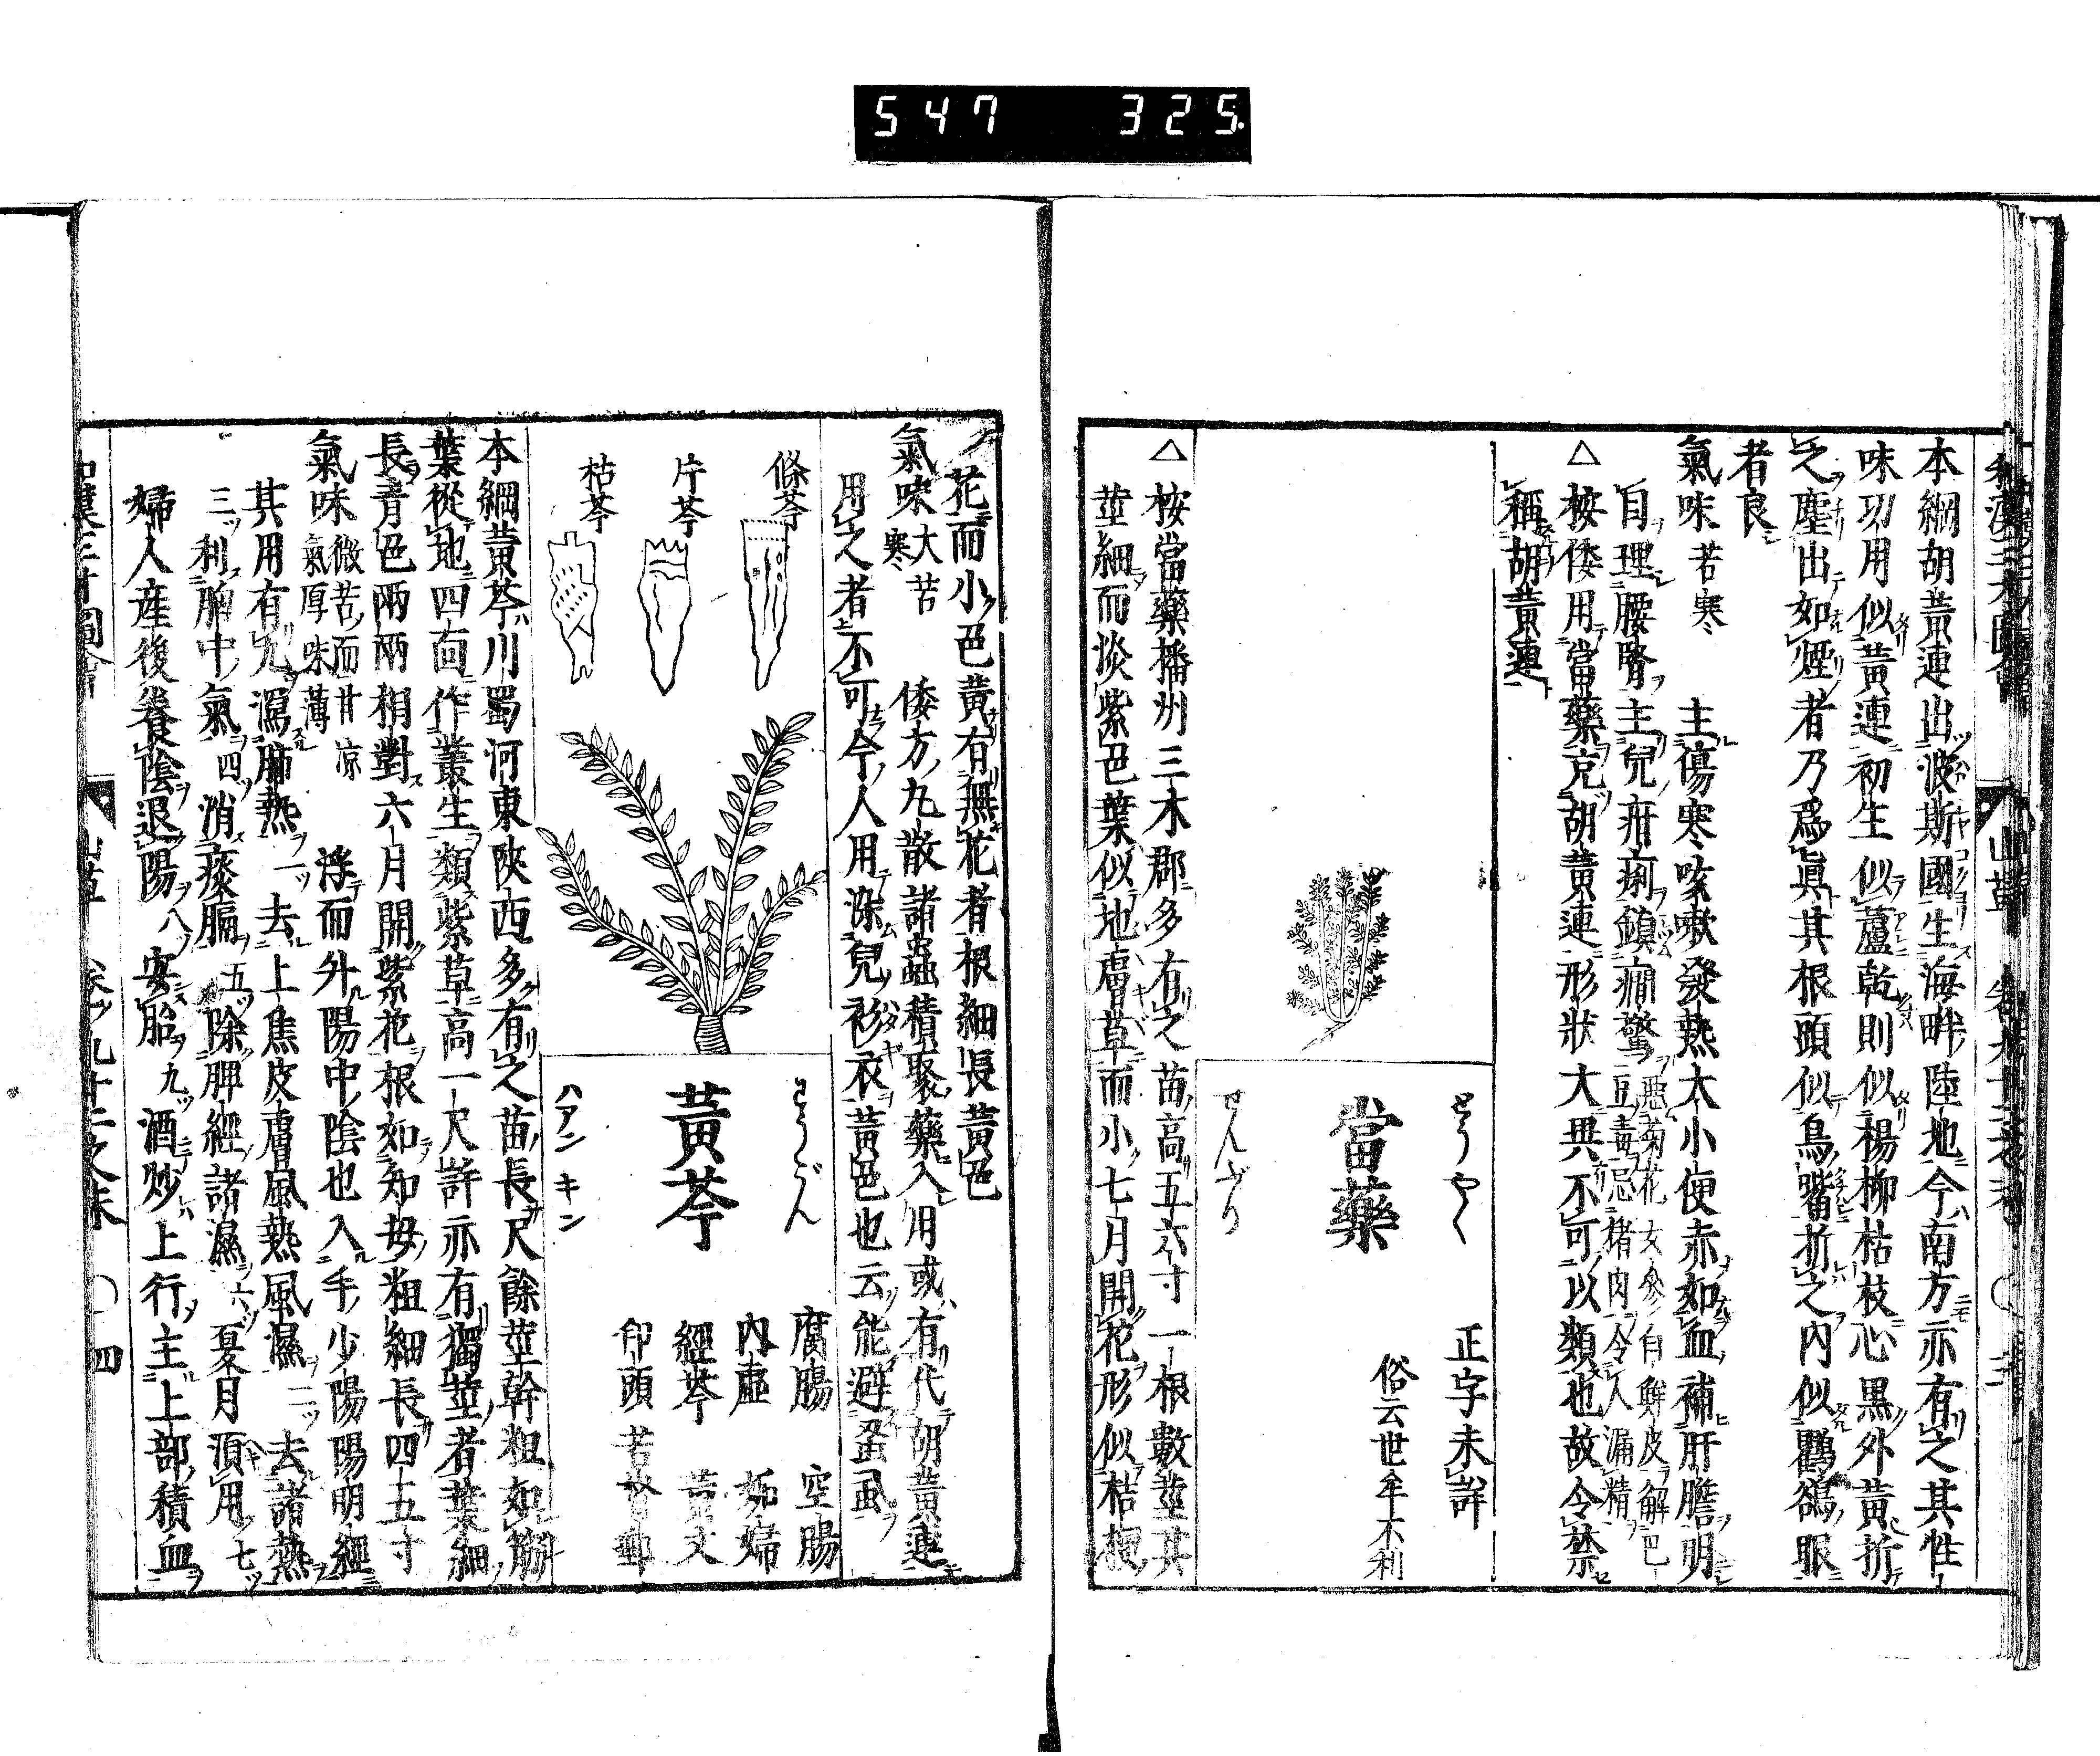 547 325
本綱胡黃連出波斯國生海畔陸地今南方亦有之其性
味功用似黃連初生似蘆乾則似楊柳枯枝心黑外黃折
之塵出如煙者乃爲眞其根頭似鳥嘴折之內似鸜鵒眼
者良
氣味苦寒 主傷寒咳嗽發熱大小便赤如血補肝膽明
目理腰腎主兒疳痢鎮癇驚惡菊花玄參白鮮皮解巴豆毒忌猪肉令人漏精
△按倭用當藥充胡黃連形狀大異不可以類也故令禁
稱胡黃連
たうやく
當藥
せんぶり
正字未詳
俗云世牟不利
△按當藥播州三木郡多有之苗高五六寸一根數莖其
莖細而淡紫色葉似地膚草而小七月開花形似桔梗
花而小色黃有無花者根細長黃色
氣味大苦寒 倭方丸散諸蟲積聚藥入用或有代胡黃連
用之者不可今人用染兒衫衣黃色也云能避蚤虱
條芩
片芩
枯芩
わうごん
黃芩
ハアン キン
腐腸 空腸
內虛 妬婦
經芩 黃文
印頭 苦督郵
本綱黃芩川蜀河東陝西多有之苗長尺餘莖幹粗如筯
葉從地四面作叢生類紫草高一尺許亦有獨莖者葉細
長青色兩兩相對六月開紫花根如知母粗細長四五寸
氣味微苦而甘凉氣厚味薄 浮而外陽中陰也入手少陽陽明經
其用有九瀉肺熱一ツ去上焦皮膚風熱風濕二ツ去諸熱
三ツ利胸中氣四ツ消痰膈五ツ除脾經諸濕六ツ夏月須用七ツ
婦人產後養陰退陽八ツ安胎九ツ酒炒上行主上部積血
山草 卷ノ九十二之末 〇四